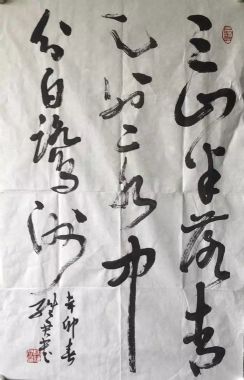 三山半落青
天外二水中
分白鷺洲
辛卯春